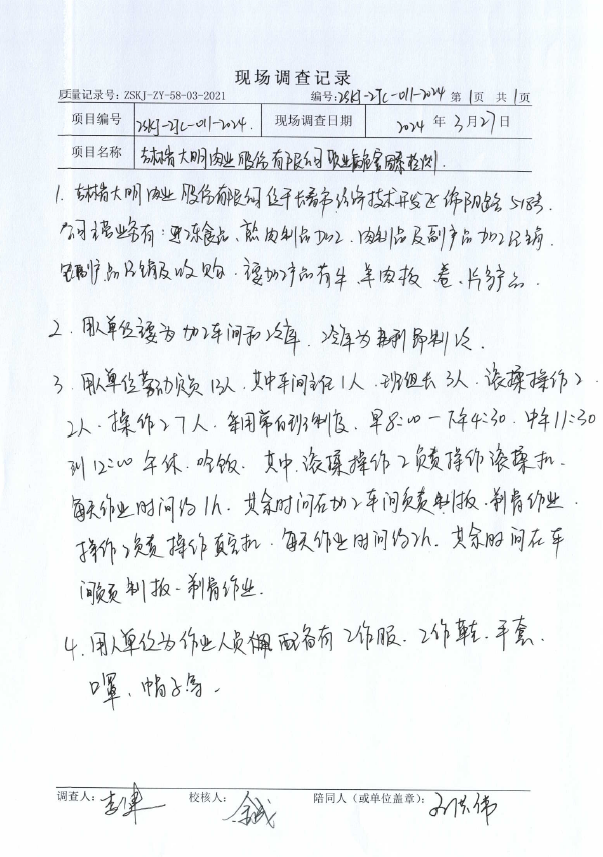 现场调查记录
质量记录号：ZSKJ-ZY-58-03-2021 编号：ZSKJ-ZJC-011-2024 第1页 共1页
项目编号 ZSKJ-ZJC-011-2024. 现场调查日期 2024年3月27日
项目名称 吉林省大明肉业股份有限公司职业病危害因素检测.
1. 吉林省大明肉业股份有限公司位于长春市经济技术开发区 518号.
公司主营业务有：速冻食品、熟肉制品加工. 肉制品及副产品加工经销.
产品经销及收购. 主要加工产品有牛.羊肉板.卷.片等产品.
2. 用人单位主要为加工车间和冷库. 冷库为弗利昂制冷.
3. 用人单位劳动员13人, 其中车间主任1人. 班组长3人. 滚揉操作工
2人. 操作工7人. 采用常白班制度. 早8:00一下午4:30. 中午11:30
到12:00午休.吃饭. 其中.滚揉操作工负责操作滚揉机.
每天作业时间约1h. 其余时间在加工车间负责制板.剃骨作业.
操作工负责操作真空机. 每天作业时间约2h. 其余时间在车
间负责制板-剃骨作业.
4. 用人单位为作业人员配备有工作服. 工作鞋. 手套.
口罩、帽子等.
调查人： 校核人： 陪同人（或单位盖章）：